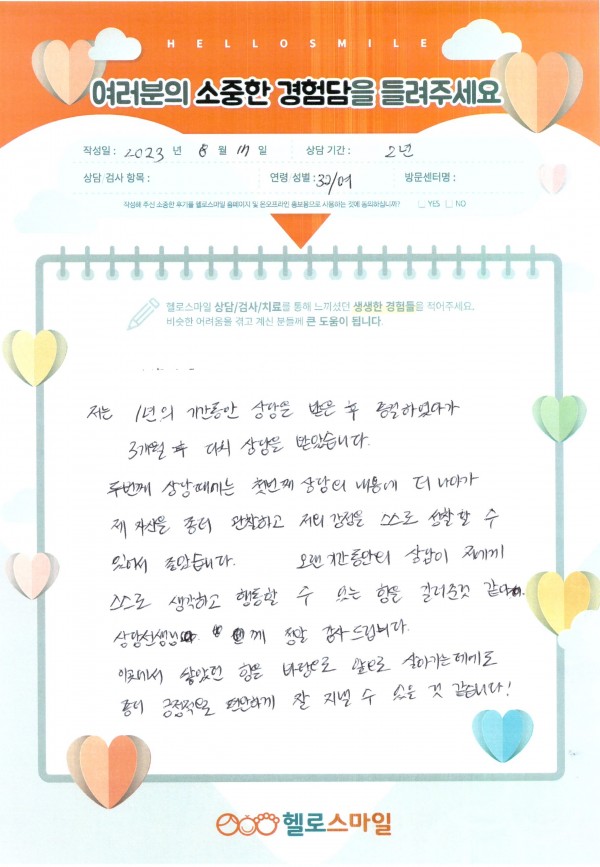 HELLOSMILE
여러분의 소중한 경험담을 들려주세요
작성일 : 2023 년 8 월 17 일 상담 기간 : 2년
상담·검사 항목 : 연령/성별 : 30/여 방문센터명 :
작성해 주신 소중한 후기를 헬로스마일 홈페이지 및 온오프라인 홍보용으로 사용하는 것에 동의하십니까? YES NO
헬로스마일 상담/검사/치료를 통해 느끼셨던 생생한 경험들을 적어주세요.
비슷한 어려움을 겪고 계신 분들께 큰 도움이 됩니다.
저는 1년의 기간동안 상담을 받은 후 종결하였다가
3개월 후 다시 상담을 받았습니다.
두번째 상담때에는 첫번째 상담의 내용에 더 나아가
제 자신을 좀더 관찰하고 저의 감정을 스스로 성찰할 수
있어서 좋았습니다. 오랜 기간동안의 상담이 저에게
스스로 생각하고 행동할 수 있는 힘을 길러준것 같아요.
상담선생님께 정말 감사드립니다.
이곳에서 쌓았던 힘을 바탕으로 앞으로 살아가는데에도
좀더 긍정적으로 편안하게 잘 지낼 수 있을 것 같습니다!
헬로스마일